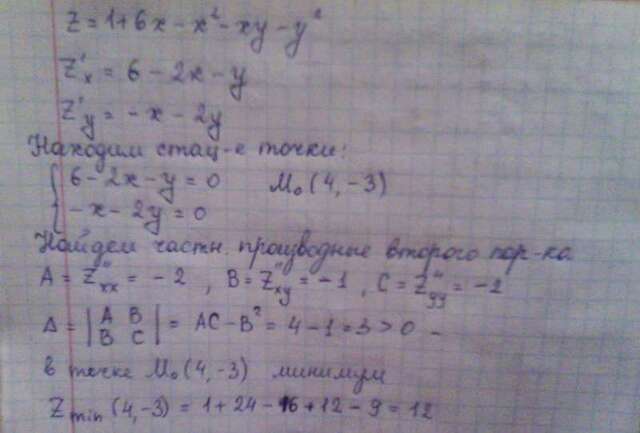 z = 1 + 6x - x² - xy - y²
z'x = 6 - 2x - y
z'y = -x - 2y
Находим стац-е точки:
{ 6 - 2x - y = 0   M₀(4, -3)
{ -x - 2y = 0
Найдем частн. производные второго пор-ка
A = z''xx = -2, B = z''xy = -1, C = z''yy = -2
Δ = |A B| = AC - B² = 4 - 1 = 3 > 0 -
|B C|
в точке M₀(4, -3) минимум
z min (4, -3) = 1 + 24 - 16 + 12 - 9 = 12